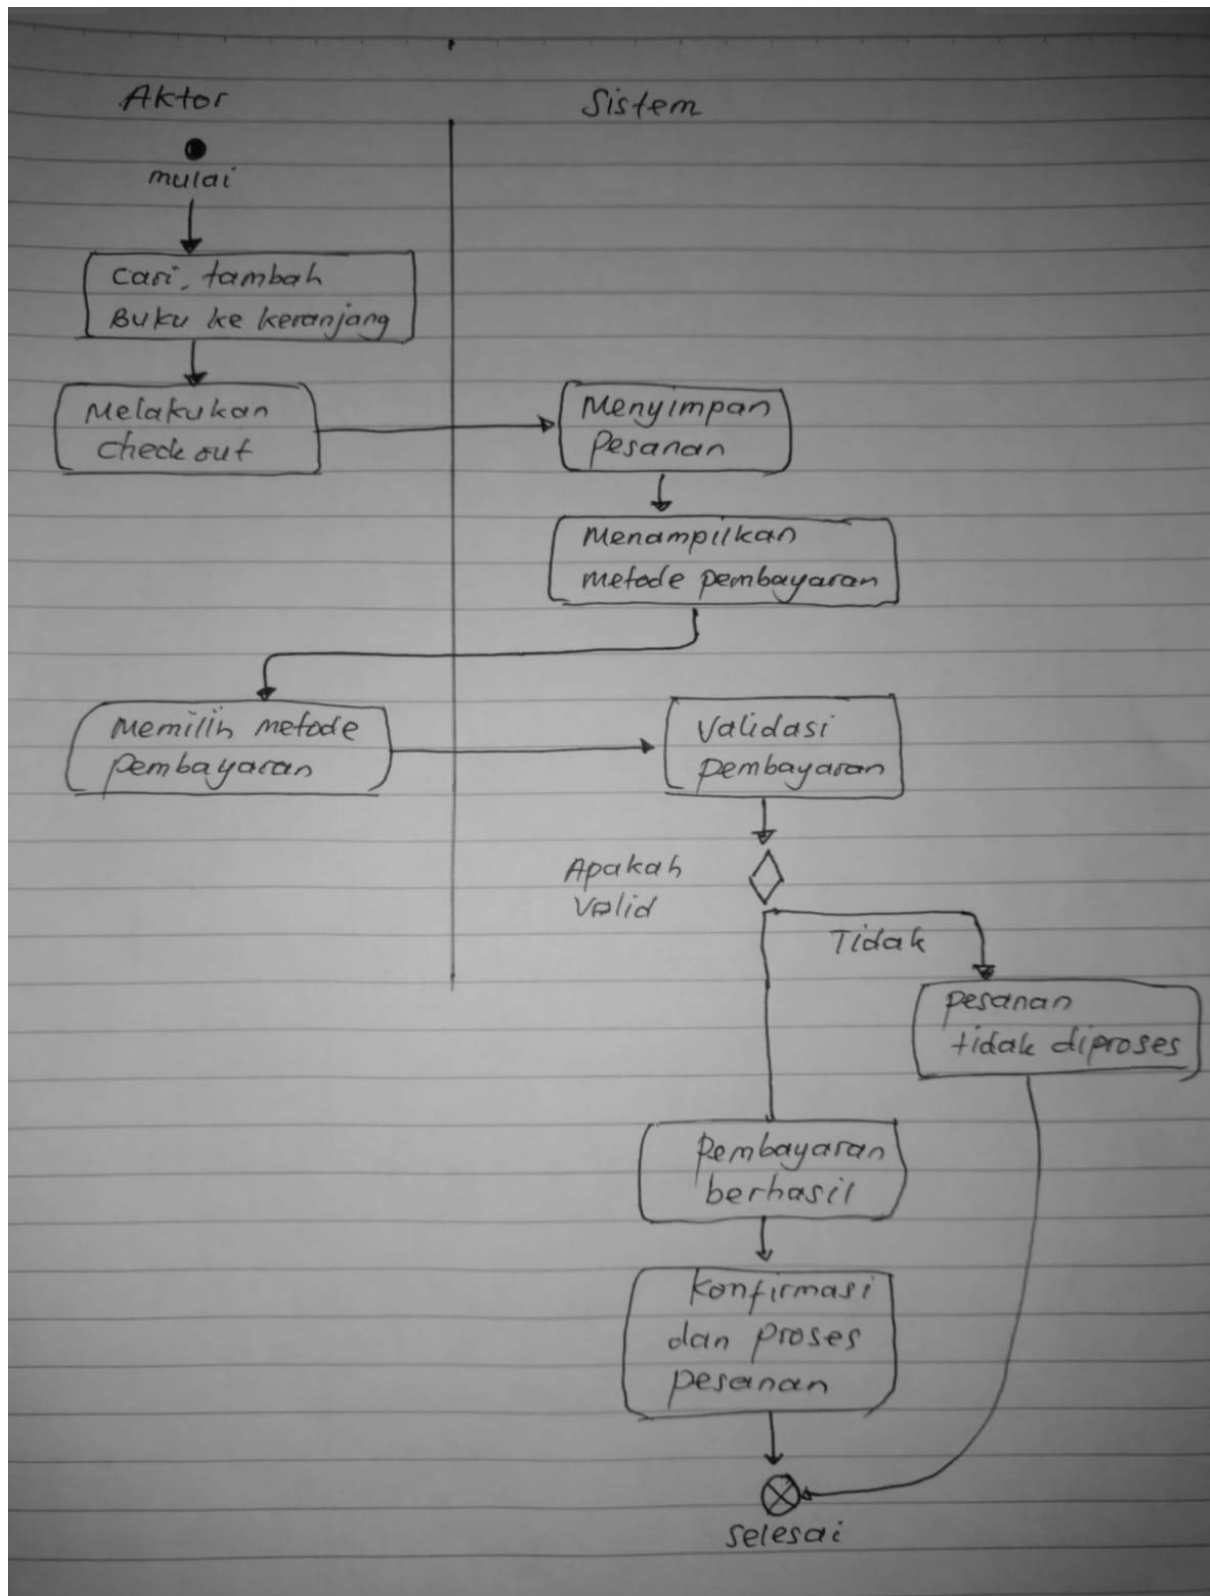 Aktor
Sistem
mulai
Cari, tambah
Buku ke keranjang
Melakukan
Check out
Menyimpan
Pesanan
Menampilkan
metode pembayaran
Memilih metode
pembayaran
Validasi
pembayaran
Apakah
Valid
Tidak
Pesanan
tidak diproses
Pembayaran
berhasil
Konfirmasi
dan proses
pesanan
Selesai